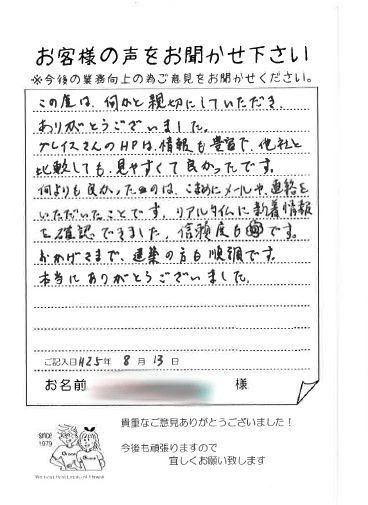 お客様の声をお聞かせ下さい
※今後の業務向上の為ご意見をお聞かせください。
この度は、何かと親切にしていただき、
ありがとうございました。
プレイスさんのHPは、情報も豊富で、他社と
比較しても、見やすくて良かったです。
何よりも良かったのは、こまめにメールや連絡を
いただいたことです。リアルタイムに新着情報
を確認できました。信頼度も◎です。
おかげさまで、建築の方も順調です。
本当にありがとうございました。
ご記入日 H25年 8月 13日
お名前 様
貴重なご意見ありがとうございました！
since
1979
今後も頑張りますので
宜しくお願い致します